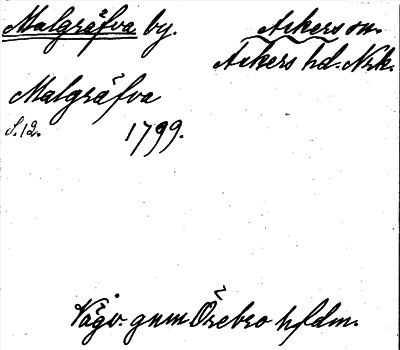 Malgräfva by.
Askers sn.
Askers hd. Nrk.
Malgräfva
S. 12. 1799.
Vägv. gnm Örebro hfdm.